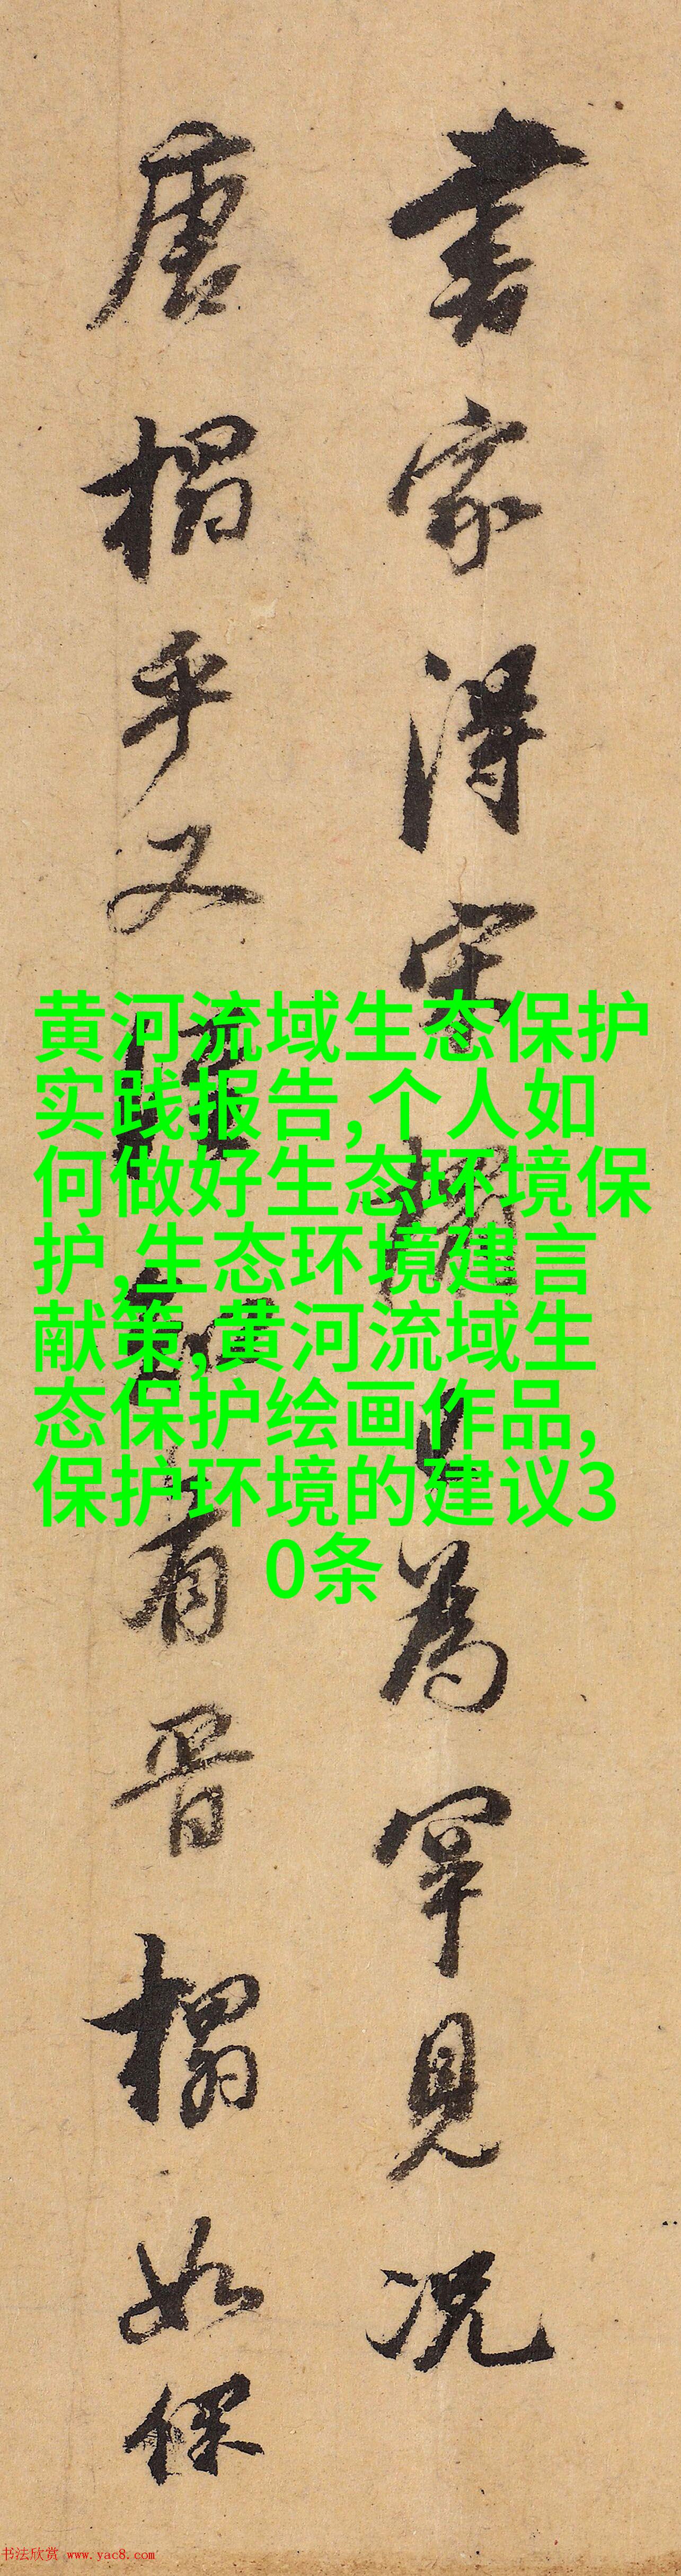 書家得宋搨為罕見況
唐搨乎又有晉搨如保
黄河流域生态保护
实践报告,个人如
何做好生态环境保
护,生态环境建言
献策,黄河流域生
态保护绘画作品,
保护环境的建议3
0条
书法欣赏 www.yac8.com